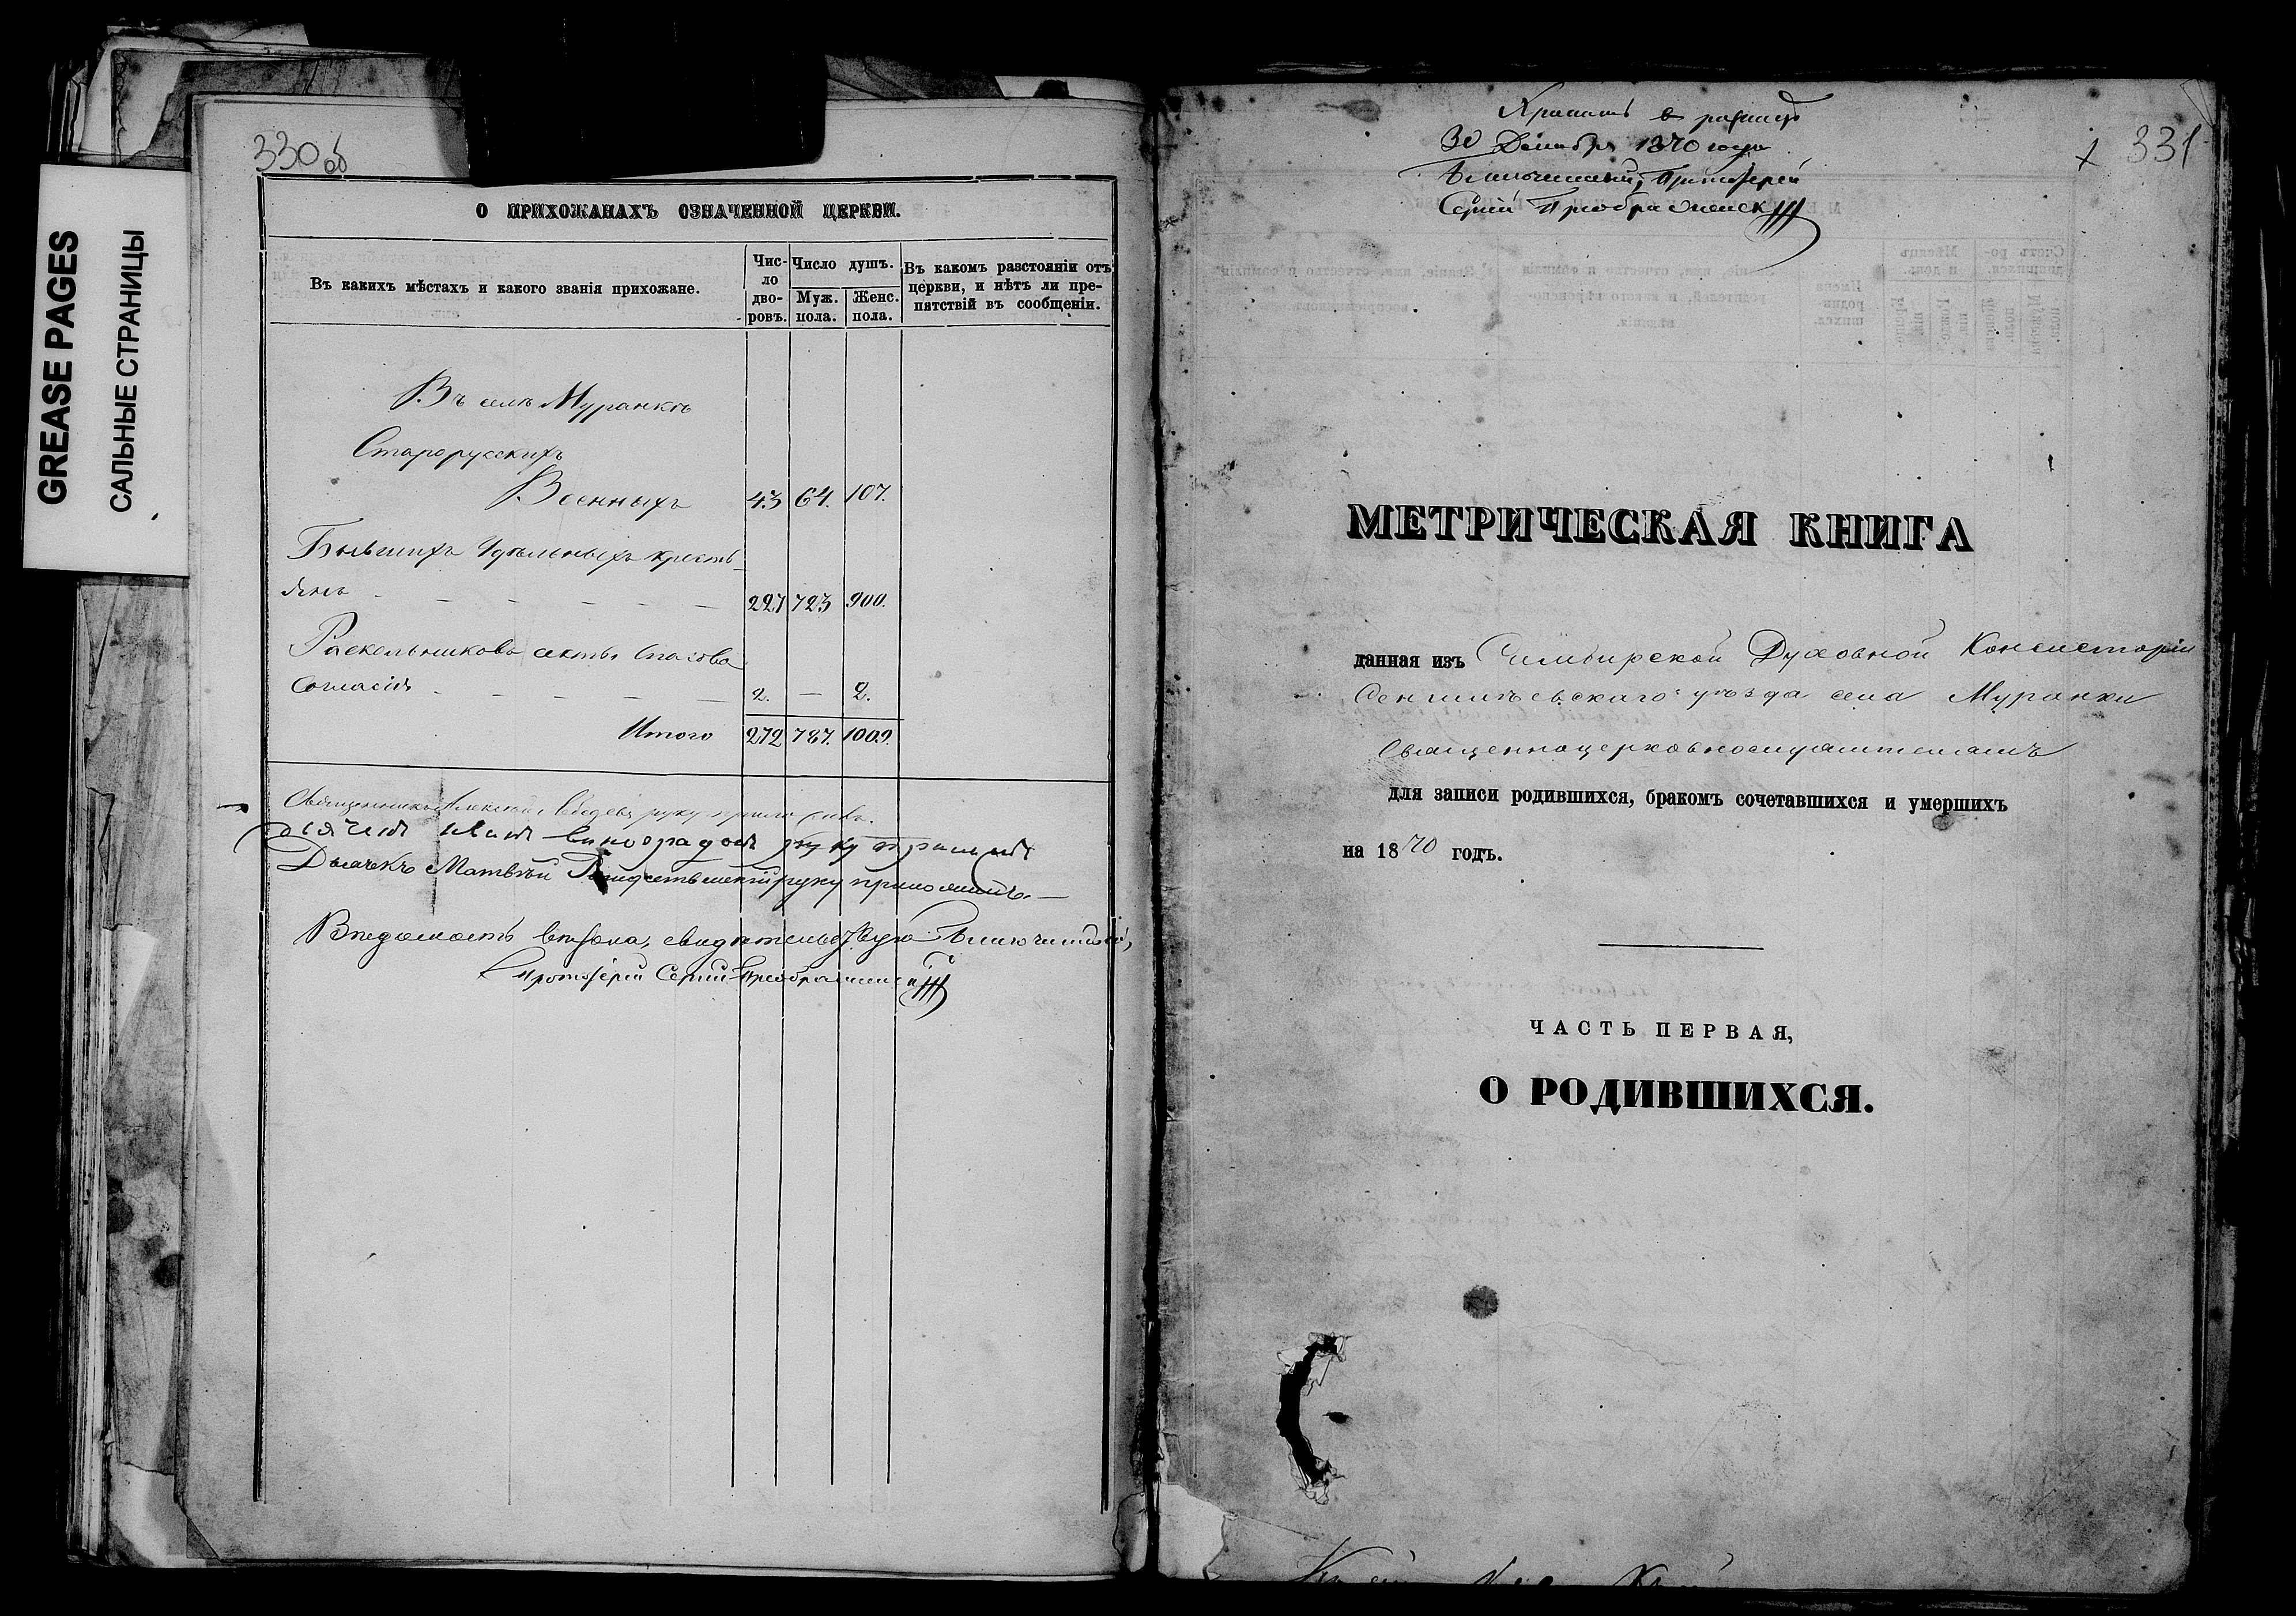 GREASE PAGES
САЛЬНЫЕ СТРАНИЦЫ
330 об
О ПРИХОЖАНАХЪ ОЗНАЧЕННОЙ ЦЕРКВИ.
Въ какихъ мѣстахъ и какого званія прихожане.
Чис-
ло
дво-
ровъ.
Число душъ.
Муж.
пола.
Женс.
пола.
Въ какомъ разстояніи отъ
церкви, и нѣтъ ли пре-
пятствій въ сообщеніи.
Въ селѣ Муранкѣ
Старорусскихъ
Военныхъ 43 64. 107.
Бывшихъ Удѣльныхъ кресть-
янъ - - - - - - 227 723 900.
Раскольниковъ секты Спасова
Согласія - - - - - 2. - 2.
Итого 272 787. 1009.
Священникъ Алексѣй руку приложилъ.
Дьячекъ Виноградовъ руку приложилъ
Дьячекъ Матвѣй руку приложилъ. —
Вѣдомость свидѣтельствую Благочинный,
Протоіерей Сергій Преображенскій
331
30 Декабря 1870 года
Благочинный, Протоіерей
Сергій Преображенскій
МЕТРИЧЕСКАЯ КНИГА
данная изъ Симбирской Духовной Консисторіи
Сенгилѣевскаго уѣзда села Муранки
Священноцерковнослужителямъ
для записи родившихся, бракомъ сочетавшихся и умершихъ
на 1870 годъ.
ЧАСТЬ ПЕРВАЯ,
О РОДИВШИХСЯ.